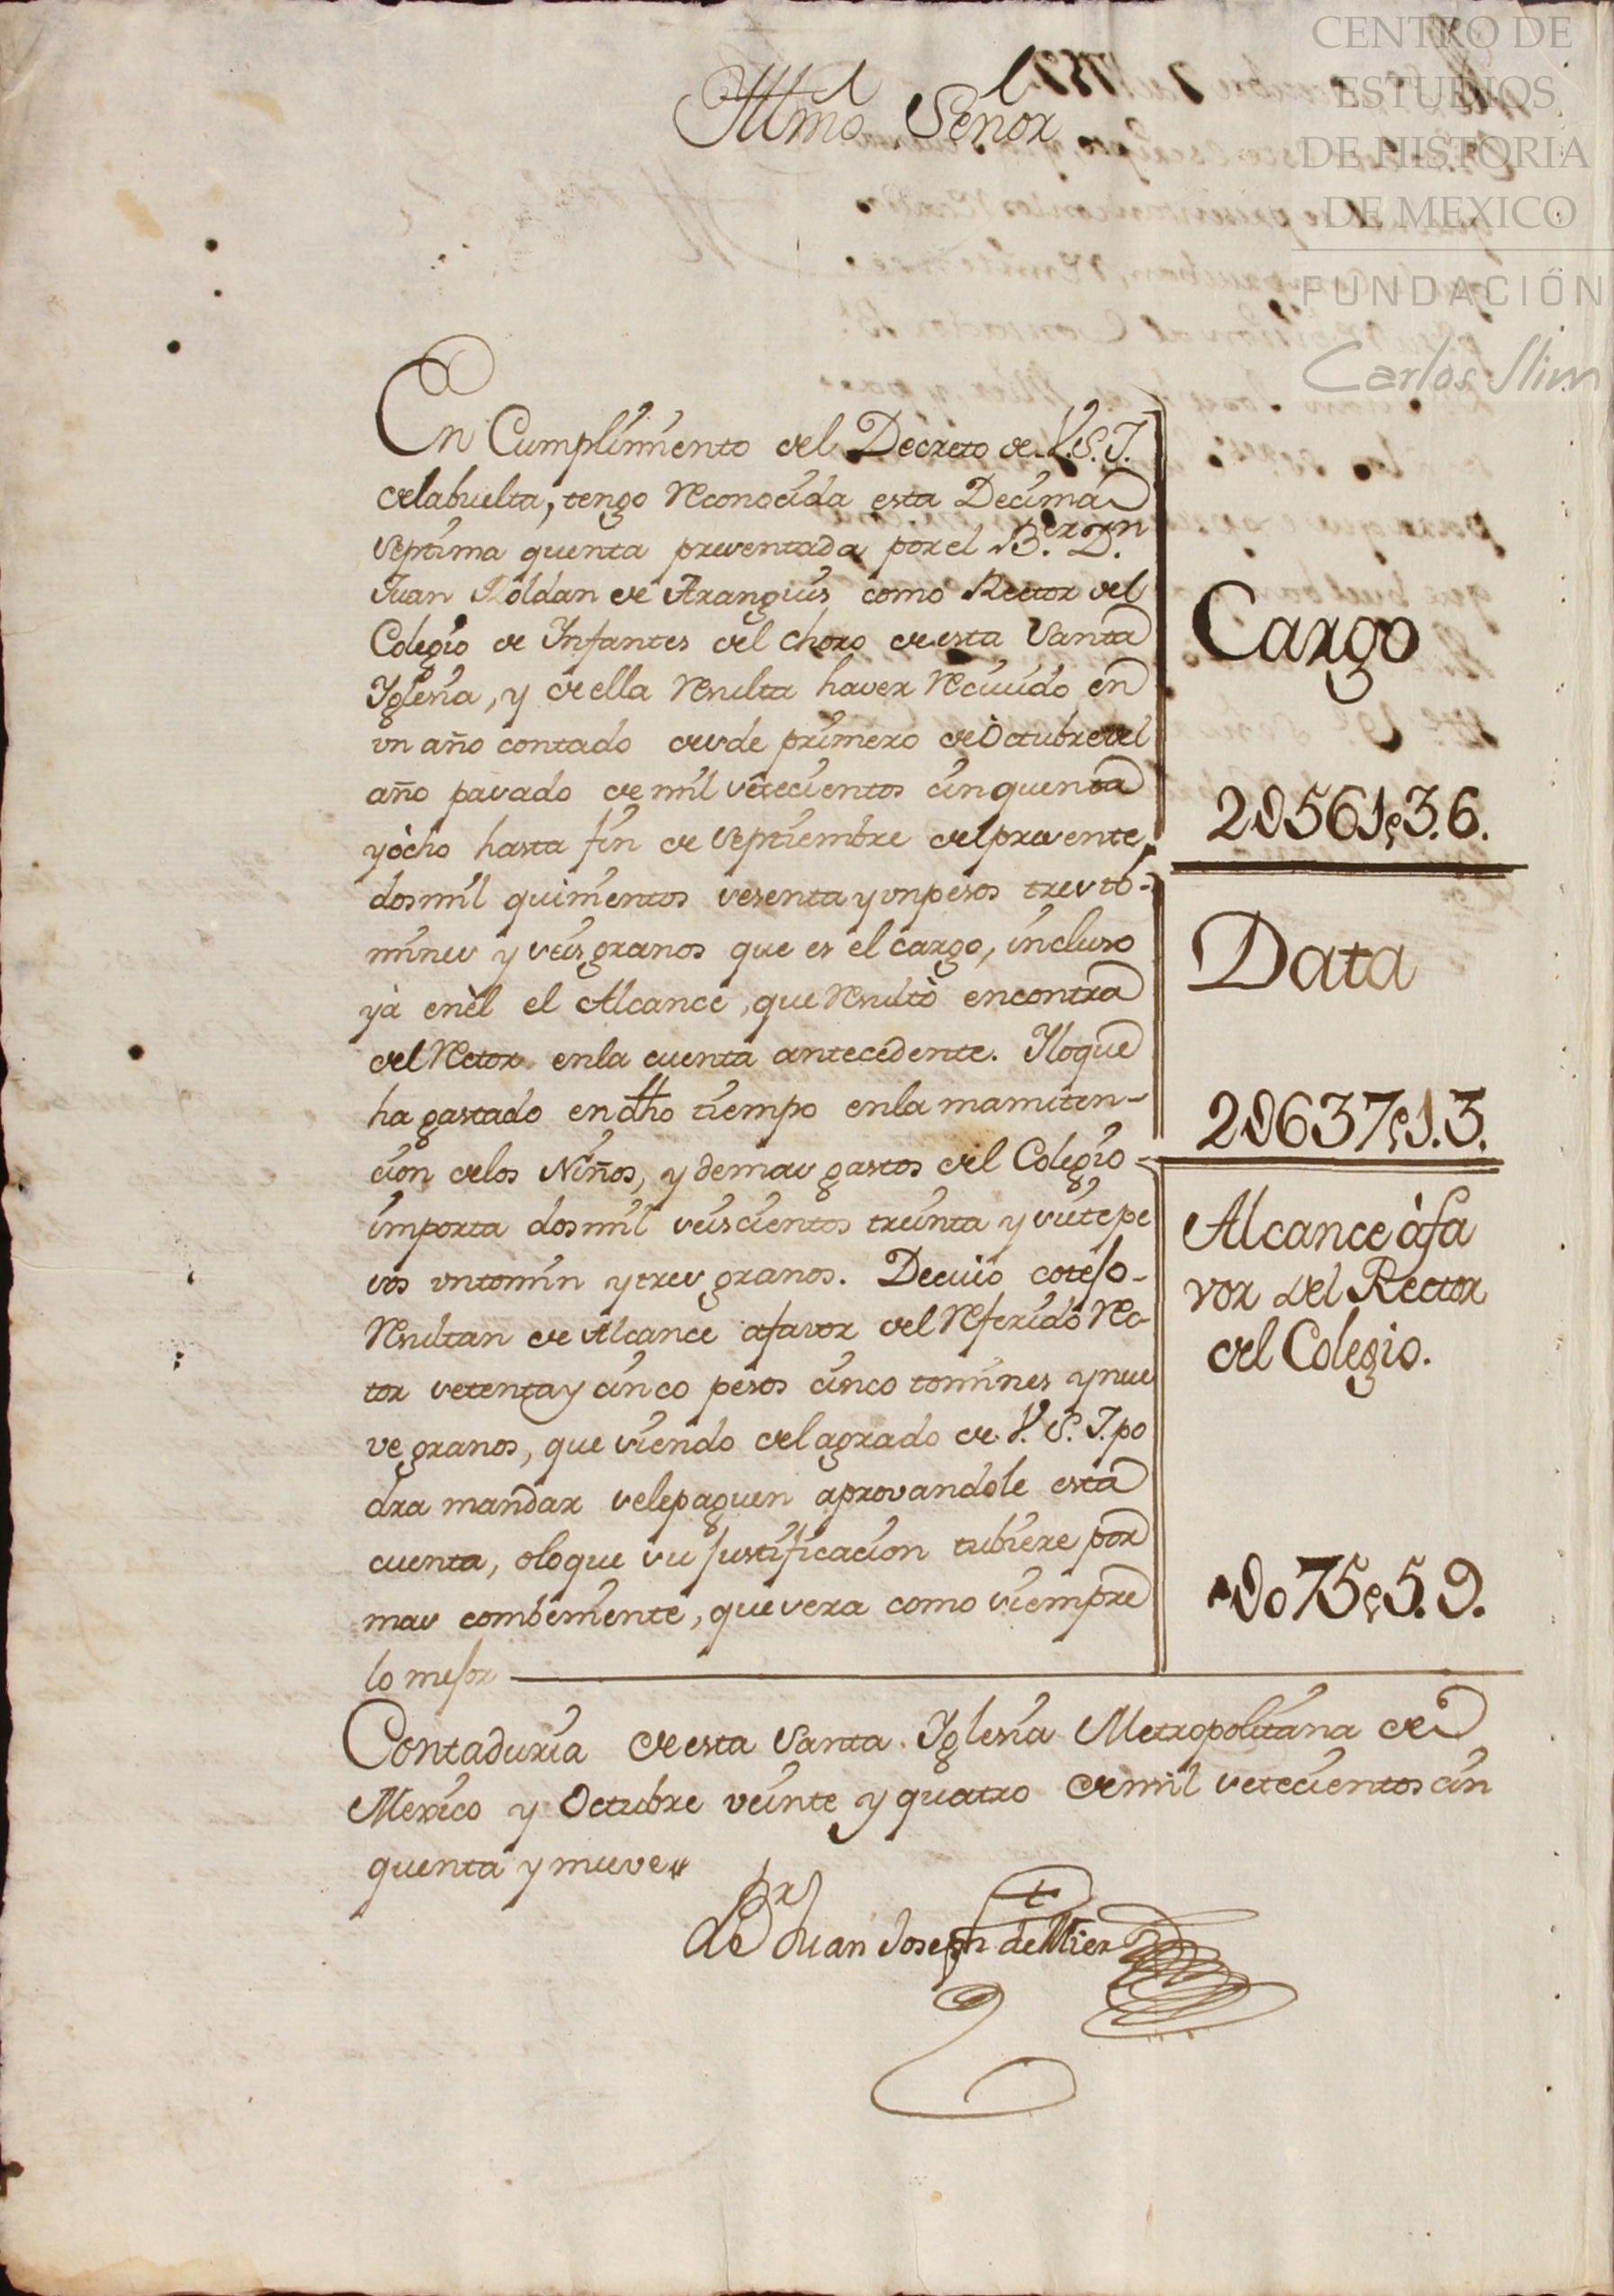 CENTRO DE
ESTUDIOS
DE HISTORIA
DE MEXICO
FUNDACIÓN
Carlos Slim
Illmo. Señor
En Cumplimiento del Decreto de V.S.I.
delabuelta, tengo reconocida esta Decima
septima quenta presentada por el B.er D.n
Juan Roldan de Aranguis, como Rector del
Colegio de Infantes del choro de esta Santa
Iglesia, y de ella resulta haver recivido en
un año contado desde primero de Octubre del
año pasado de mil setecientos cinquenta
y òcho hasta fin de septiembre del presente
dos mil quinientos sesenta y un pesos tres to-
mines y seis granos que es el cargo, incluso
yà enèl el Alcance, que resultò encontra
del Rector enla cuenta antecedente. Y loque
ha gastado en dho tiempo enla manuten-
cion delos Niños, y demas gastos del Colegio
importa dos mil seiscientos treinta y siete pe
sos un tomin y tres granos. De cuio cotejo
resultan de Alcance afavor del referido Rec-
tor setenta y cinco pesos cinco tomines y nue
ve granos, que siendo del agrado de V.S.I. po
dra mandar selepaguen aprovandole esta
cuenta, oloque su justificacion tubiere por
mas combeniente, que sera como siempre
lo mejor
Cargo
2U561p3.6.
Data
2U637p1.3.
Alcance àfa
vor del Rector
del Colegio.
U075p5.9.
Contaduria de esta Santa Iglesia Metropolitana de
Mexico y Octubre veinte y quatro de mil setecientos cin
quenta y nueve
Br Juan Joseph de Mier